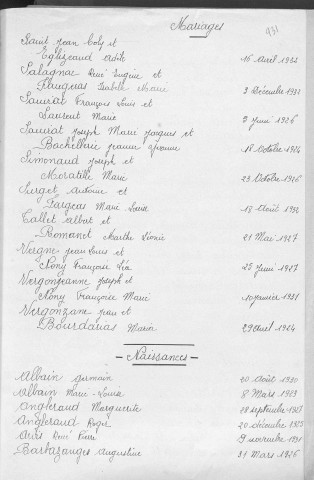 Mariages
931
Saint Jean Coly et
Eglizeaud Edith 16 Avril 1932
Salagnac René Eugène et
Flrugnas Isabelle Marie 3 Décembre 1932
Sauviat François Louis et
Laurent Marie 2 Juin 1926
Sauviat Joseph Marie Jacques et
Bachellerie Jeanne 18 Octobre 1924
Simonaud Joseph et
Moratille Marie 23 Octobre 1926
Surget Antoine et
Fargeas Marie Louise 18 Août 1932
Tallet Albert et
Romanet Marthe Léonie 21 Mai 1927
Vergne Jean Louis et
Nony Françoise Léa 25 Juin 1927
Vergonzeanne Joseph et
Nony Françoise Marie 10 janvier 1931
Vergonzane Jean et
Bourdarias Maria 29 avril 1924
- Naissances -
Albain Germain 20 Août 1930
Albain Marie-Louise 8 Mars 1929
Angleraud Marguerite 28 septembre 1923
Angleraud Roger 20 décembre 1925
René Pierre 9 novembre 1931
Barbazanges Augustine 31 Mars 1926